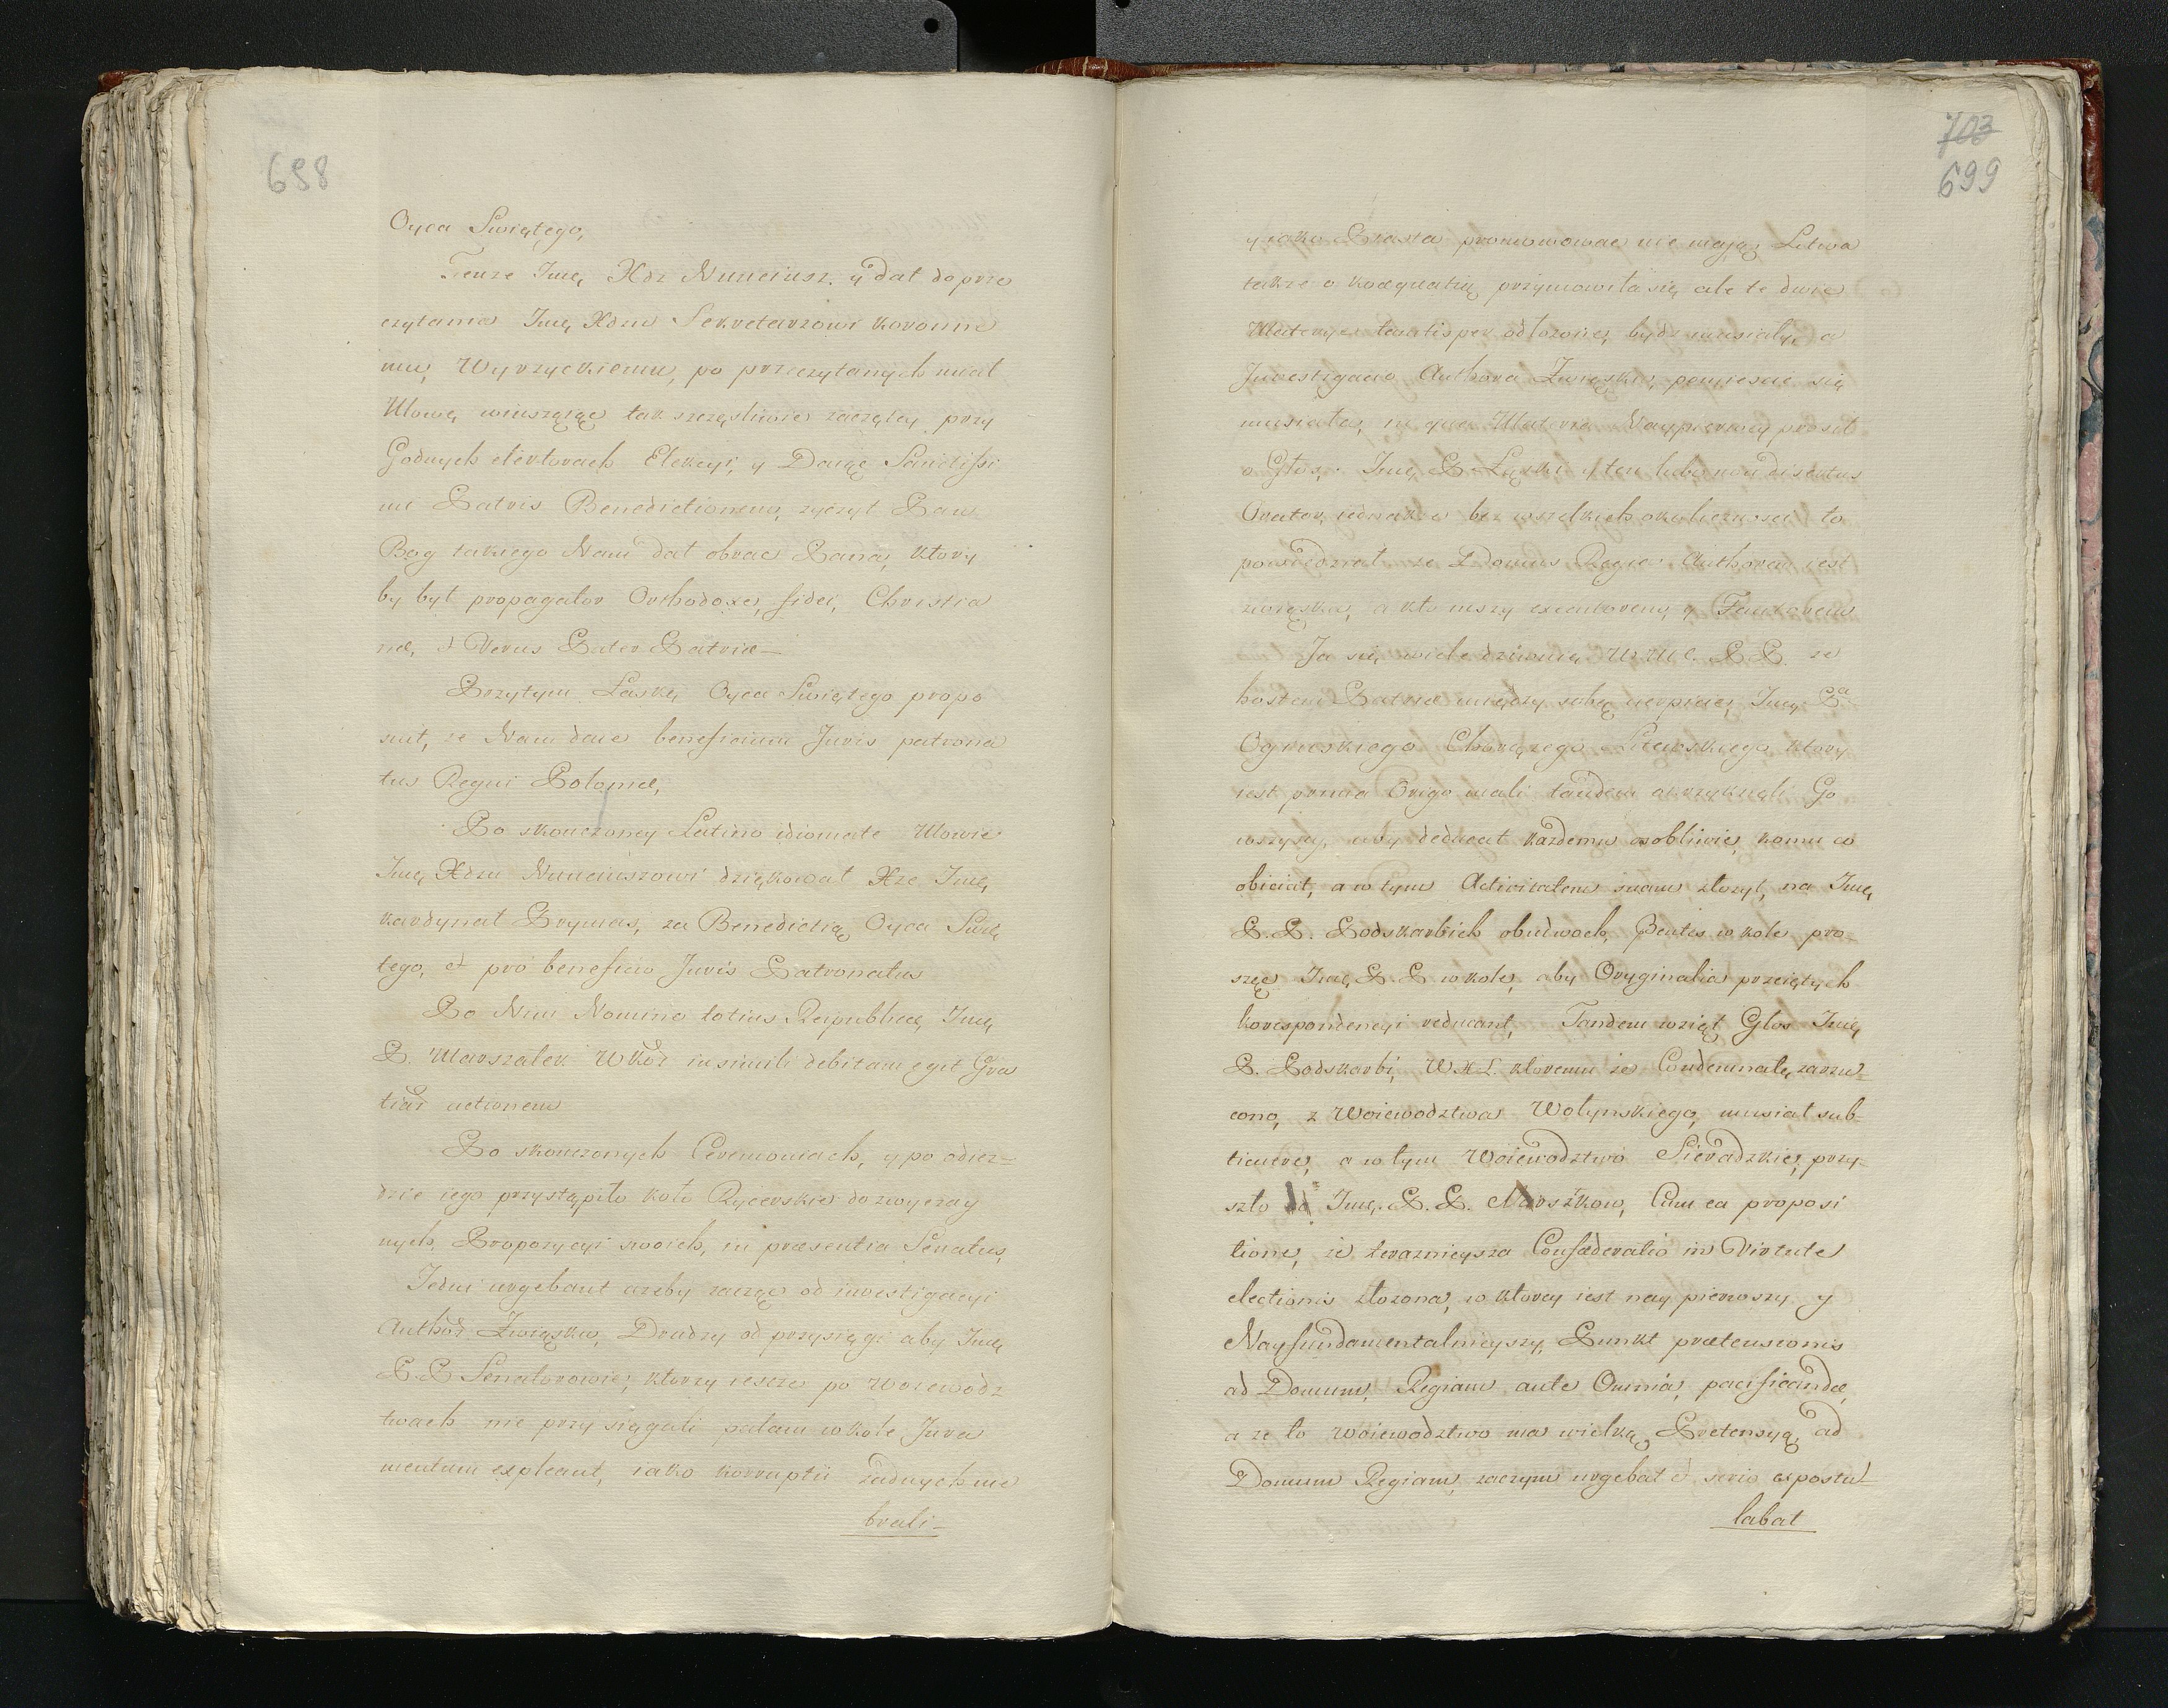 698
Oyca Swiętego,
Tenze Imę Xdz Nunciusz. y dał do prze
czytania Imę Xdzu Sekretarzowi koronne
mu, Wyrzyckiemu, po przeczytanych miał
Mowę winszując tak szczęśliwie zaczętey przy
Godnych elektorach Elekcyi, y Daiąc Sanctissi
mi Patris Benedictionem, zyczył Pan
Bog takiego Nam dał obrac Pana, ktory
by był propagator Orthodoxæ fidei, Christia
næ, et Verus Pater Patriæ_
Przytym Łaskę Oyca Swiętego propo
suit, ze Nam daie beneficium Juris patrona
tus Regni Poloniæ,
Po skonczoney Latino idiomate Mowie
Imę Xdzu Nunciuszowi dziękował Xze Imę
kardynał Prymas, za Benedictią Oyca Swię
tego, et pro beneficio Juris Patronatus
Po Nim Nomine totius Reipublicæ Imę
P. Marszałek WKoł in simili debitam egit Gra
tiar actionem
Po skonczonych Ceremoniach, y po odiez=
dzie iego przystąpiło koło Rycerskie do zwyczay
nych, Propozycyi swoich, in præsentia Senatus,
Jedni urgebant azeby zacząc od investigacyi
Author Związku, Drudzy od przysięgi aby Imę
P.P Senatorowie, ktorzy iescze po Woiewodz
twach nie przysięgali palam w kole Jura
mentum expleant, iako korruptii zadnych nie
brali_
703
699
y iako Piasta promowowac nie maią, Litwa
takze o koæquatią przymowiła się ale te dwie
Materye tantisper odłozone bydz musiały, a
Investigacio Authora Związku, pomiescic się
musiała, in qua Materia Naypierwey prosił
o Głos. Imę P Łąski y ten lubo non disertus
Orator, iednak w bez wszelkich okolicznosci to
powiedział ze Domus Regia Authorem iest
związku, a kto inszy executorem, y Fautorem
Ja się wiele dziwuię WMC. P.P. ze
hostem Patriæ między sobą cierpicie, Imę Pa
Oginskiego Chorązego Litewskiego ktory
iest prima Origo mali tandem okrzyknęli Go
wszyscy, aby deducat kazdemu osobliwie, komu co
obiciał, a w tym Activitatem suam złozył, na Imę
P.P. Podskarbich obudwoch, Bentis w kole pro
szę Imę P.P w kole, aby Oryginalia przeiętych
korespondencyi reducant, Tandem wziął Głos Imę
P. Podskarbi, W X L. ktoremu ze Condemnatę zarzu=
cono, z Woiewodztwa Wołynskiego, musiał sub-
ticuere, a w tym Woiewodztwo Sieradzkie, przy-
szło do Imę. P.P. Marszkow, Cum ea proposi
tione, ze terazniejsza Confæderatio in Virtute
electionis złozona, w ktorey iest nay pierwszy y
Nayfundamentalnieyszy Punkt prætensionis
ad Domum, Regiam ante Omnia, pacificandæ
a ze to woiewodztwo ma wielką Pretensyą, ad
Domum Regiam, zaczym urgebat et serio expostu-
labat